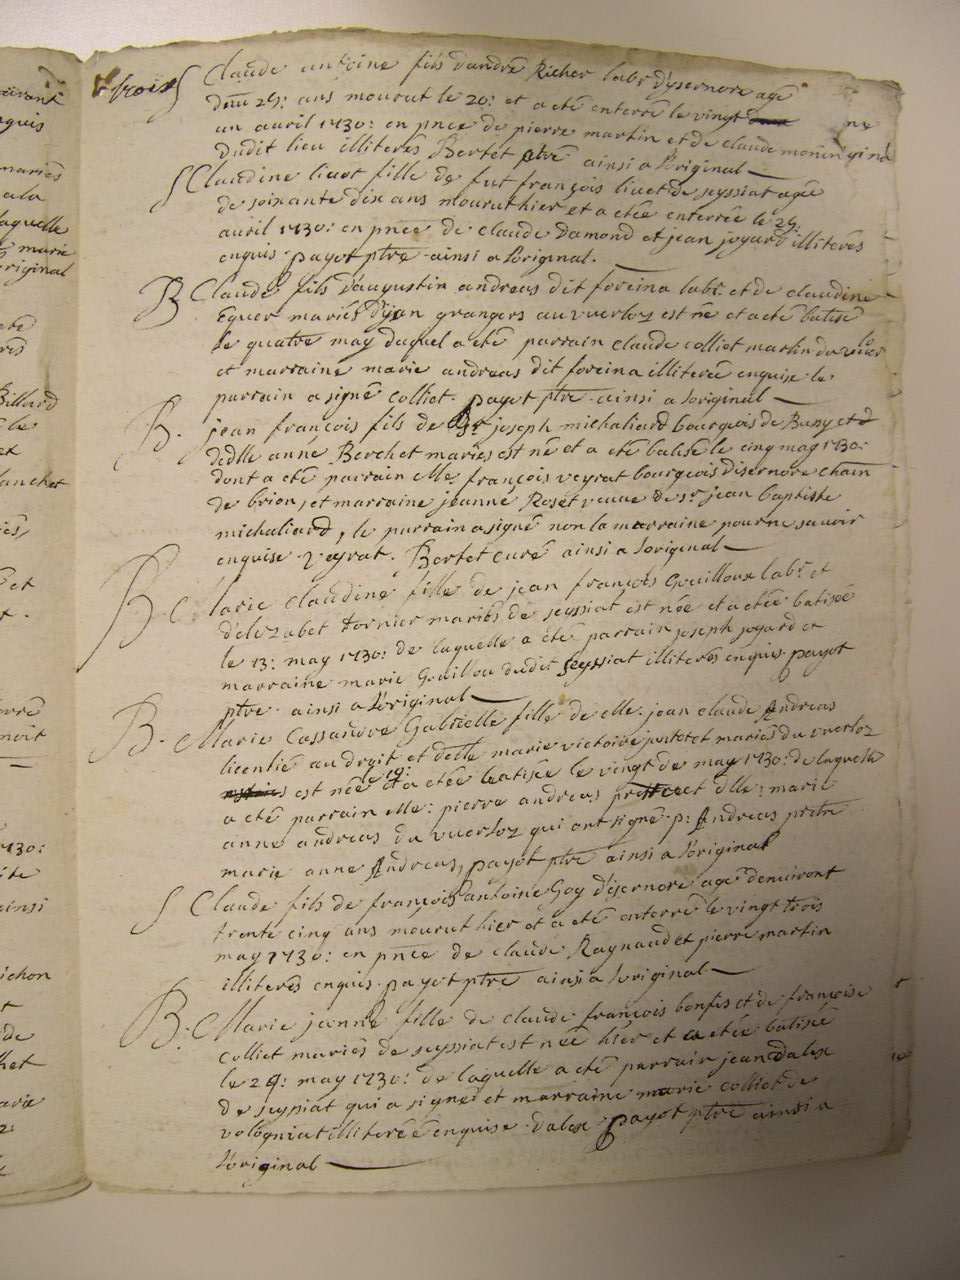 trois S Claude antoine fils d'andré Richer labr d'ysernore agé
d'un 25: ans mourut le 20: et a eté enterré le vingt
un avril 1730: en pnce de pierre martin et de claude monin
dudit lieu illiterés Bertet ptre ainsi a l'original
S Claudine livet fille de fut françois livet de seyssiat agée
de soixante dix ans mourut hier et a etée enterrée le 25:
avril 1730: en pnce de claude Damond et jean joyard illiterés
enquis. payot ptre. ainsi a l'original.
B Claude fils d'augustin andreas dit foreina labr. et de claudine
Equer mariés d'ijean grangers au vuerloz est né et a eté batisé
le quatre may duquel a eté parrain claude colliet martin du
et marraine marie andreas dit foreina illiterée enquise le
parrain a signé colliet. payot ptre. ainsi a l'original
B. jean françois fils de Sr joseph michaliard bourgeois de Buny et d
dedlle anne Berchet mariés est né et a eté batisé le cinq may 1730:
dont a eté parrain elle. françois veyrat bourgeois d'isernore chain
de brion, et marraine jeanne Roset veuve de sr. jean baptiste
michaliard, le parrain a signé non la marraine pour ne savoir
enquise. veyrat. Bertet curé ainsi a l'original
B. Marie claudine fille de jean françois Gouilloux labr. et
d'elizabet tornier mariés de seyssiat est née et a etée batisée
le 13: may 1730: de laquelle a eté parrain joseph joyard et
marraine marie Gouillou dudit seyssiat illiterés enquis. payot
ptre. ainsi a l'original
B. Marie Cassandre Gabrielle fille de elle. jean claude Andreas
licentié au droit et delle marie victoire justet mariés du vuerloz
est née le 19: et a etée batisée le vingt de may 1730: de laquelle
a eté parrain elle: pierre andreas pretre et dlle: marie
anne andreas du vuerloz qui ont signé. p: Andreas pretre
marie anne Andreas, payot ptre ainsi a l'original
S Claude fils de françois antoine Goy d'isernore agé denviront
trente cinq ans mourut hier et a eté enterré le vingt trois
may 1730: en pnce de claude Raynaud et pierre martin
illiterés enquis. payot ptre ainsi a l'original
B. Marie jeanne fille de claude françois bonfis et de françoise
Colliet mariés de seyssiat est née hier et a etée batisée
le 24: may 1730: de laquelle a eté parrain jean dalex
de seyssiat qui a signé et marraine marie colliet de
volognat illiterée enquise. dalex. payot ptre ainsi a
l'original